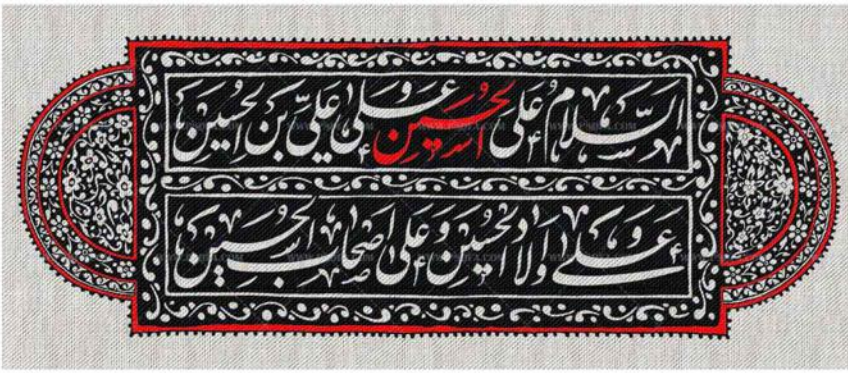 السَّلامُ عَلَى الحُسَین وَ عَلی عَلیِّ بنِ الحُسَین
وَ عَلی اَولادِ الحُسَین وَ عَلی اَصحابِ الحُسَین